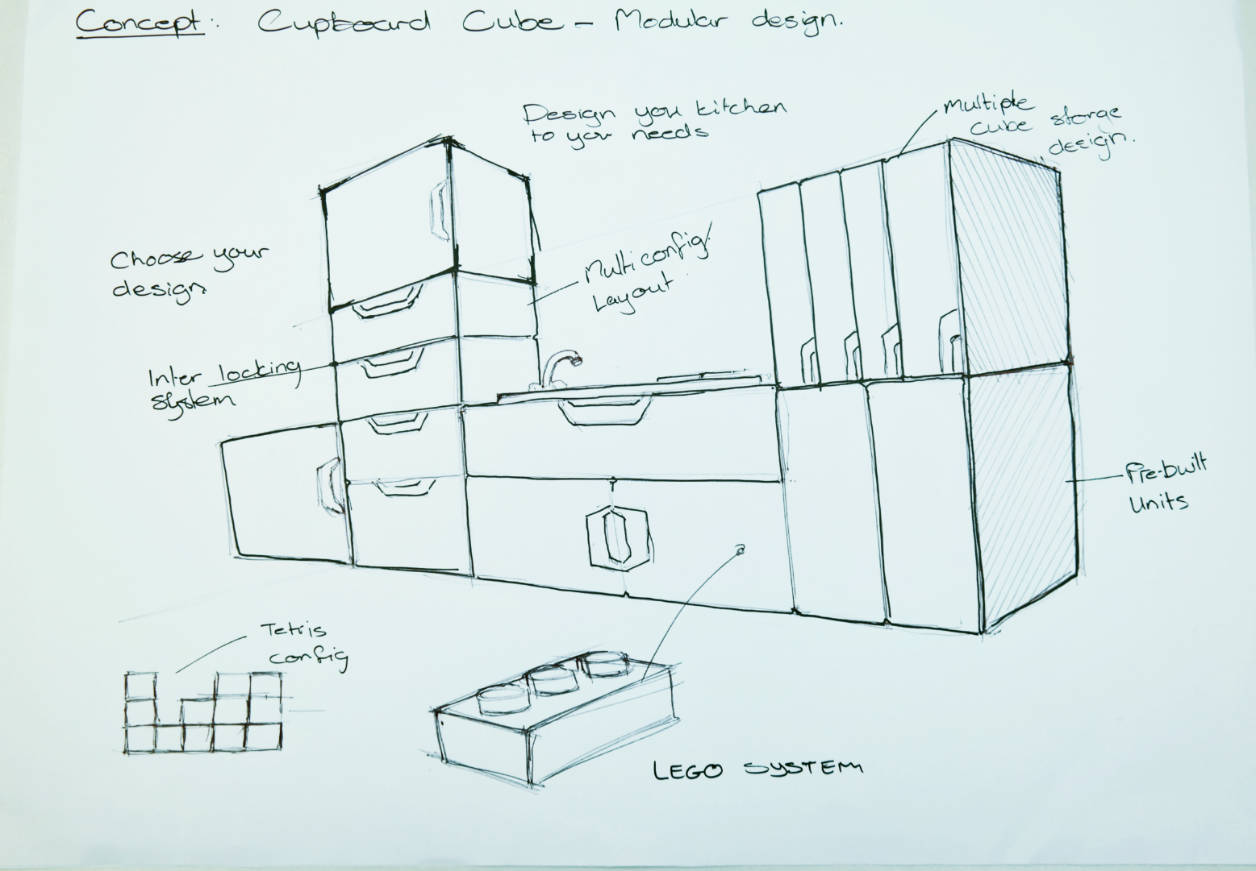 Concept: Cupboard Cube - Modular design.
Design you kitchen
to your needs
multiple
cube storge
design.
Choose your
design
Multi config/
Layout
Inter locking
system
Pre-built
Units
Tetris
config
LEGO SYSTEM